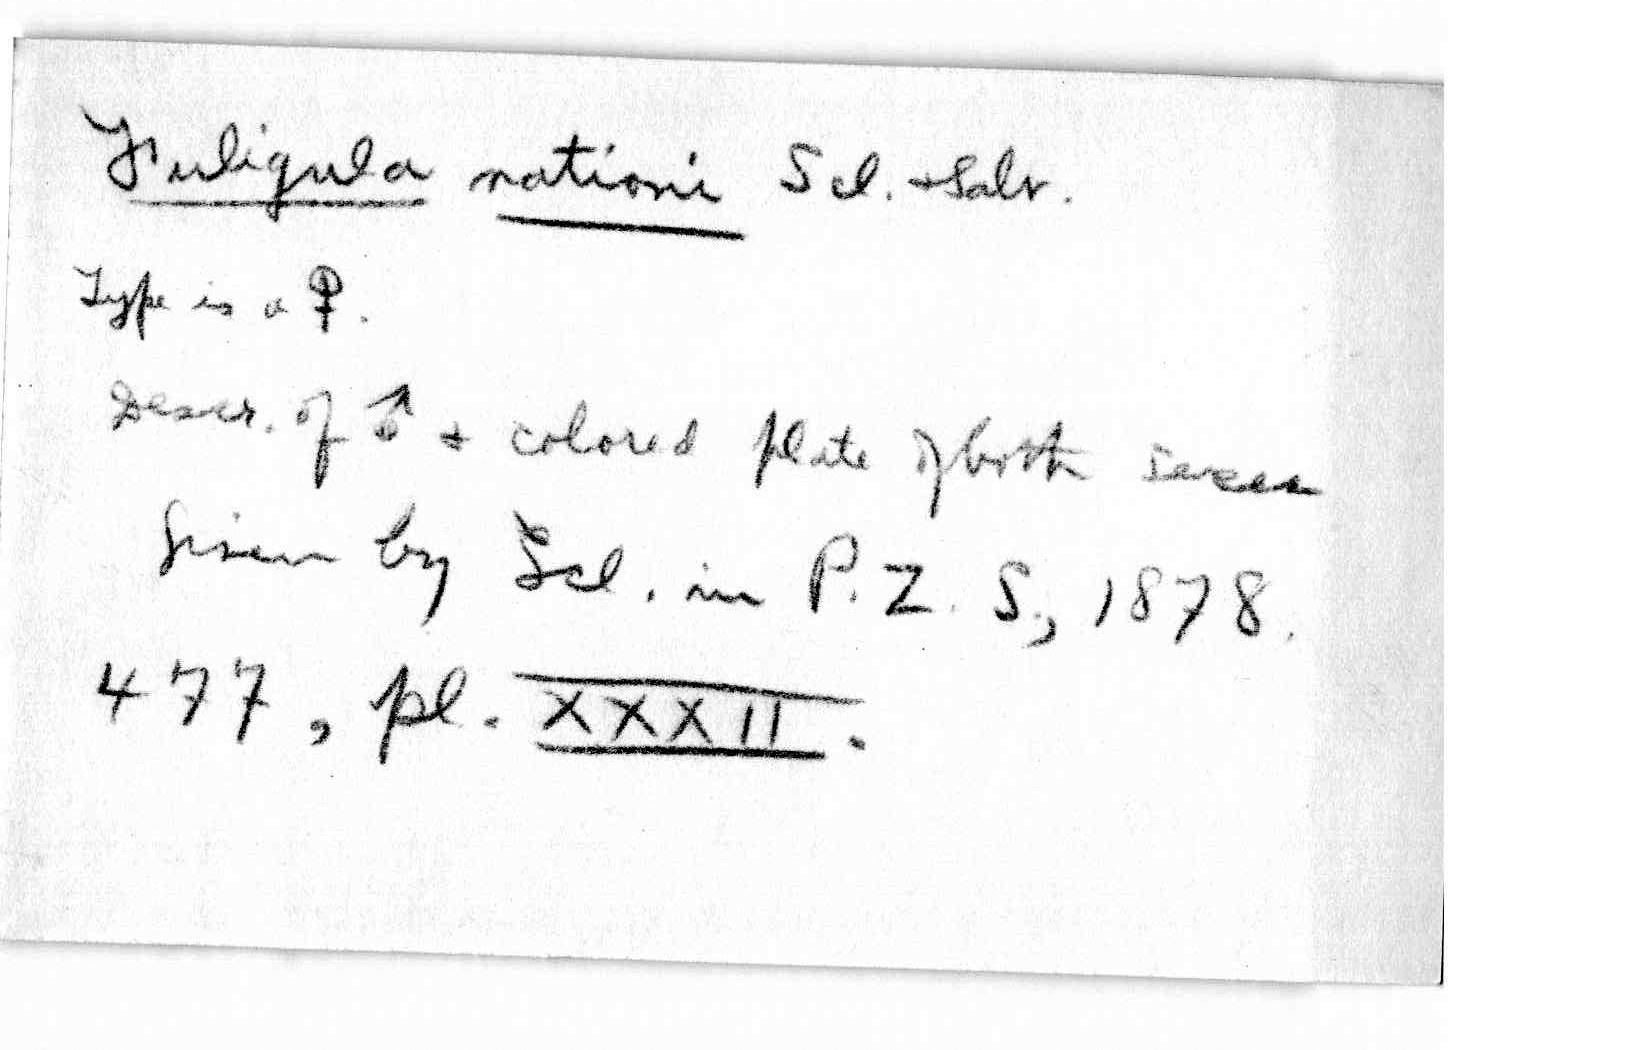 Fuligula nationi Scl. + Salv.
Type is a ♀.
Descr. of ♂ + colored plate of both sexes
given by Scl. in P. Z. S., 1878.
477, pl. XXXII.